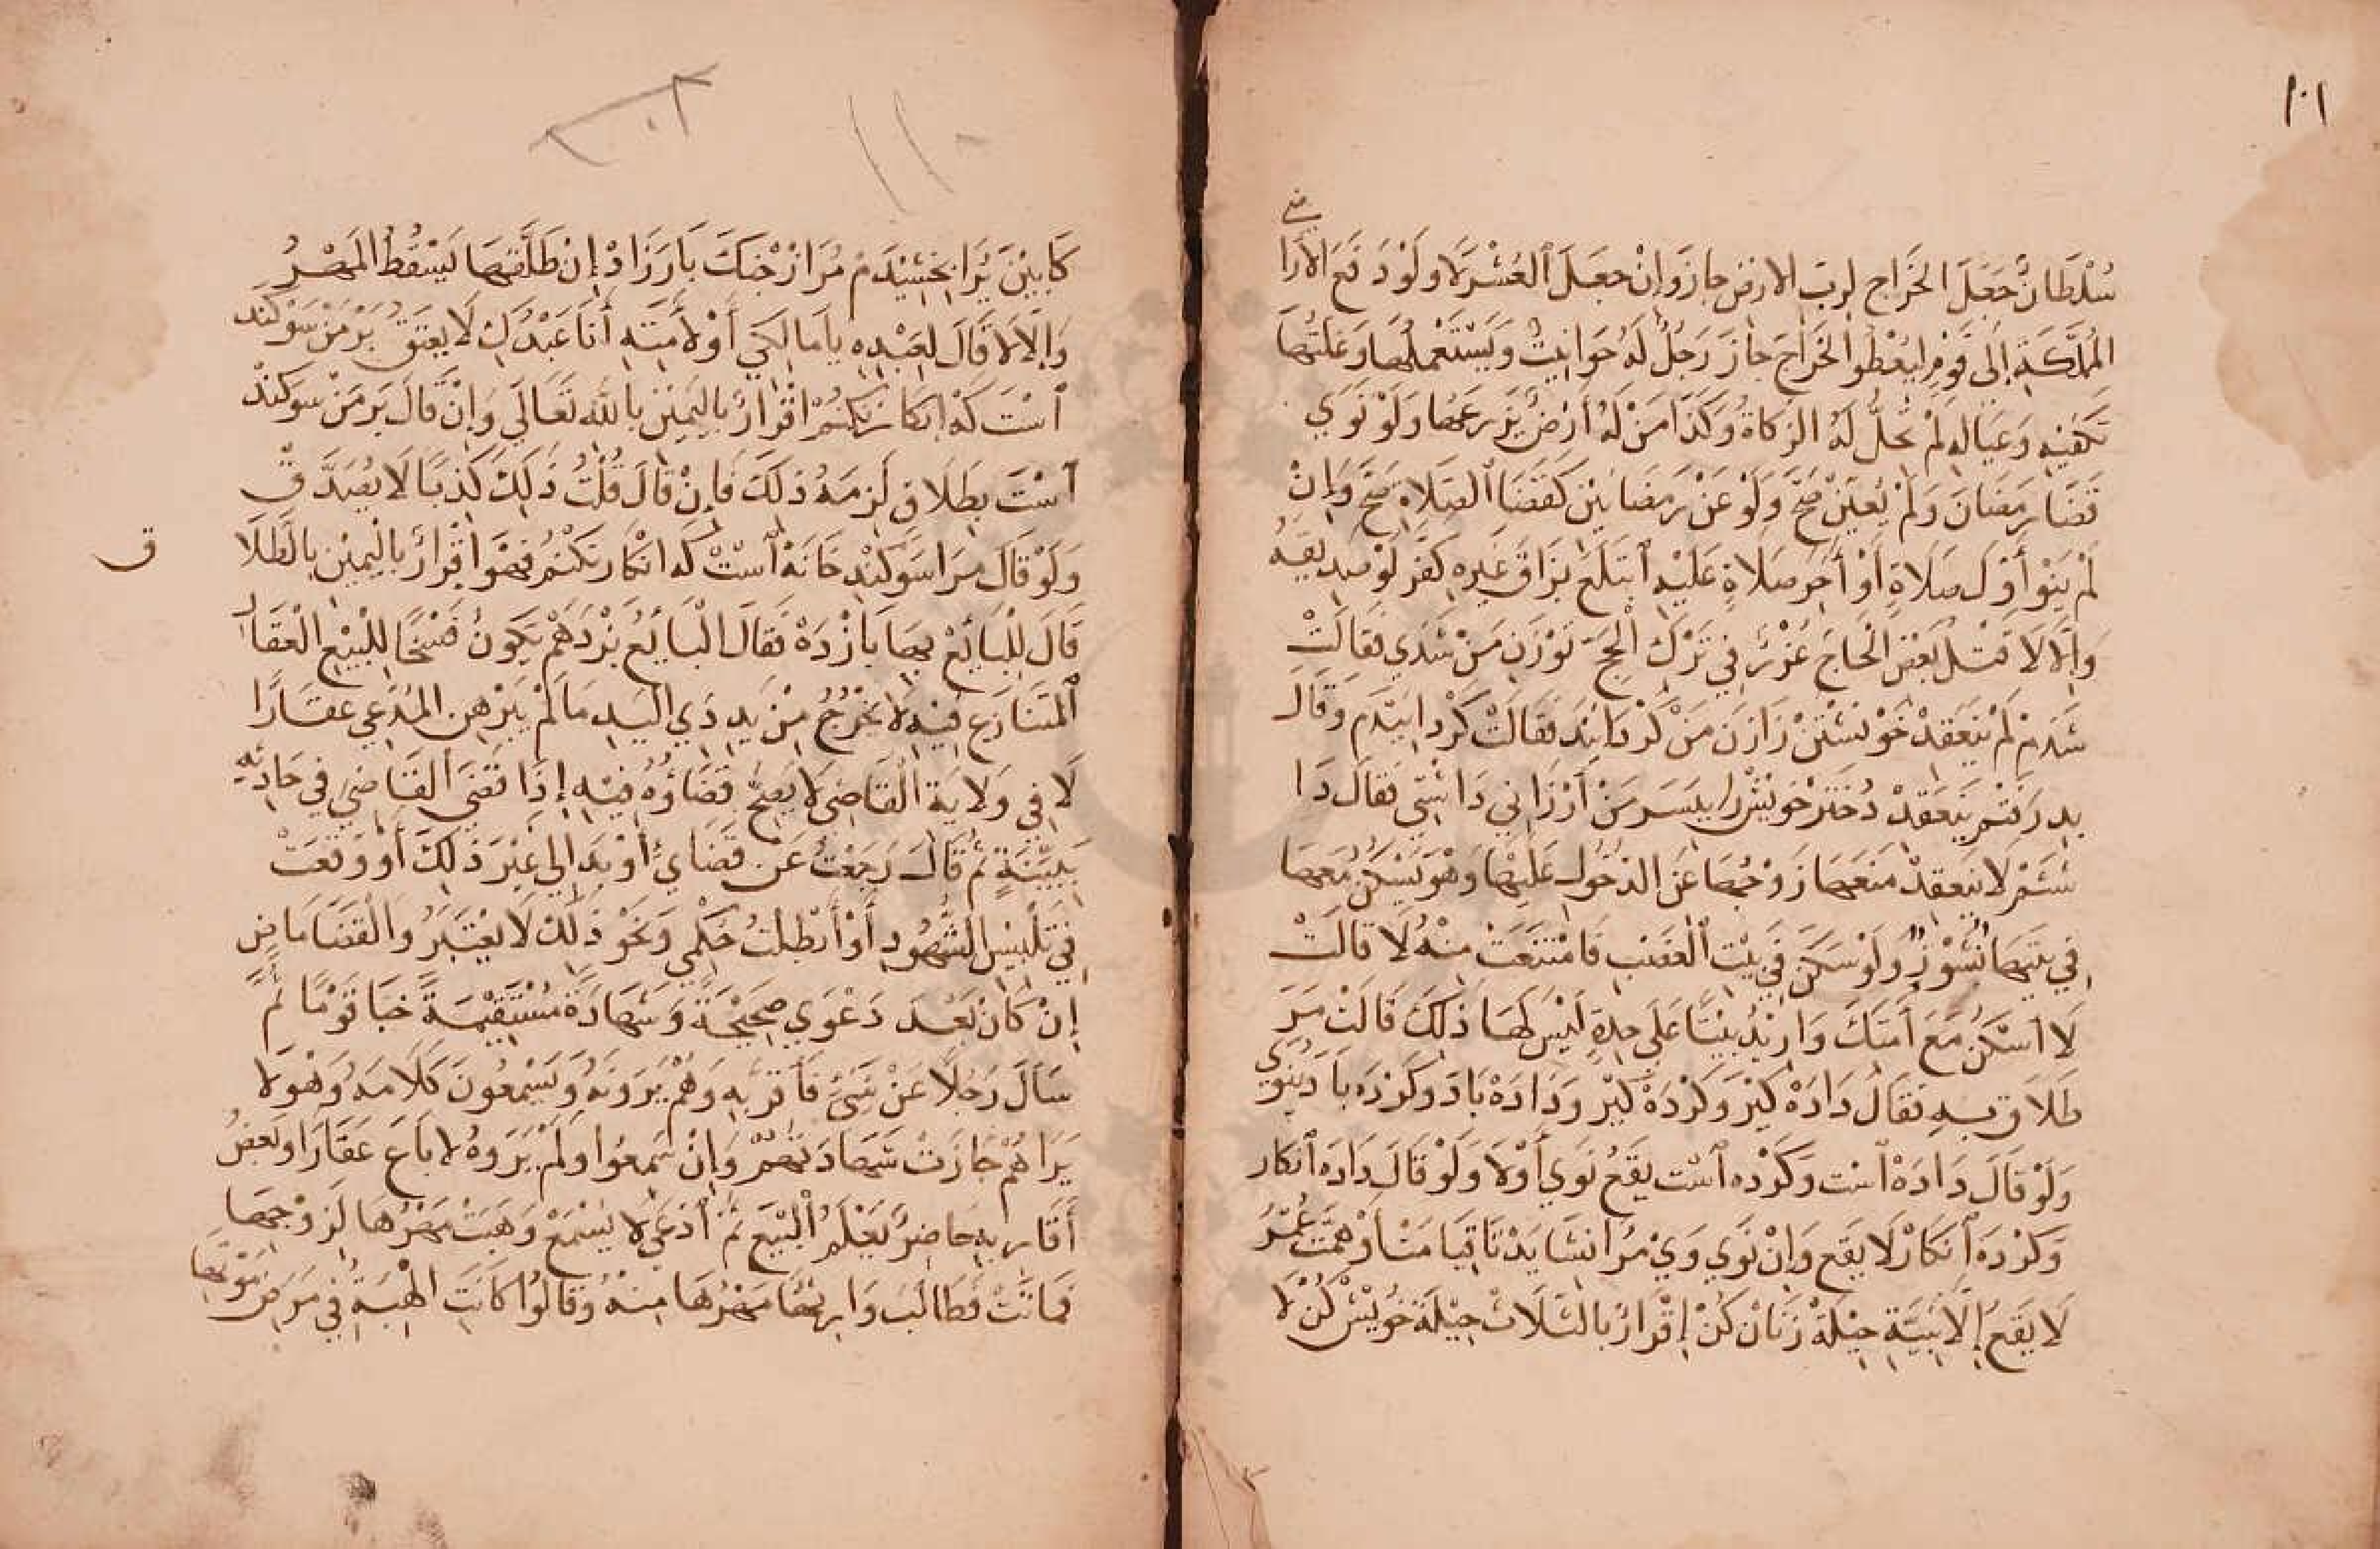 ١٠١
سُلْطَانٌ جَعَلَ الخَرَاجَ لِرَبِّ الارْضِ جازَ وَإنْ جعَلَ العُشْرَ لَا ولَوْ دَفَعَ الأَرَا
ضي
المُمَلَّكَةِ إِلَى قَوْمٍ لِيُعْطُوا الخَرَاجَ جازَ رَجُلٌ لَهُ حَوَانِيتُ وَيَسْتَعْملُهَا وَغَلَّتُهَا
تَكْفيْهِ وَعِيَالَهِ لَمْ تَحلُّ لَهُ الزكَاةُ وَكَذَا مَنْ لَهُ أَرْضٌ يَزرعهَا وَلَوْ نَوَي
قَضَا رمَضَانَ وَلَمْ يُعَيِّنْ صَحَّ وَلَوْ عَنْ رَمضانَيْنِ كَقَضَا الصَلاةِ صَحَّ وَإِنْ
لَمْ يَنوِ أَوَّلَ صَلاةٍ أَوْ أخِرَ صلاةٍ عَلَيْهِ ابْتَلَعَ بُزَاقَ غَيرِهِ كفَّر لَوْ صَدِيقَهُ
وَإِلَّا لَا قتْلُ بَعْضِ الْحَاجِّ عُذْرٌ في تَرْكِ الْحَجِّ تُوْزَنِ مَنْ شَدِي فَقَالَتْ
شُدَمْ لَمْ يَنعَقدْ خَوْيشْتَنْ رَا زَنِ مَنْ كَرْدَانيْدَ فَقَالَتْ كَرْدانيْدَم وَقَالَ
بِدرفتم يَنعَقِدُ دُخْتَرْ خويشْ را بِپسَرِ مَنْ أَرْزَاني دَاشْتي فَقالَ دَا
شتَمْ لَا يَنعقدُ مَنعهَا زَوْجَهَا عَنِ الدخُولِ عَلَيْهَا وَهُوَ يَسْكُنُ مَعَهَا
فِي بيْتهَا نُشُوْزٌ وَلَوْ سَكَنَ فِي بيْتِ الْغَصْبِ فَامْتَنعَتْ مِنْهُ لَا قالَتْ
لَا اسْكُنُ مَعَ أمَتِكَ وَارِيْدُ بيْتًا عَلَى حِدةٍ لَيْسَ لَهَا ذَلِكَ قَالَتْ مَرَ
طَلاق بِدهِ فَقَالَ دَادَهْ كَيْرْ وَكَرْدَهْ كَيْرْ وَدَادَهْ بَادْ وَكَرْدَه بَادْ يَنوي
وَلَوْ قَالَ دَادَهْ اسْت وَكَرْده اسْت يَقَعُ نَوَي أَوْلَا وَلَوْ قَالَ دَادَه انكار
وَكَرْدَه انَكارْ لَا يقَع وَإنْ نَوي وَيْ مَرَا نشَايَدْ تَا قِيَامَتْ أَوْ هَمَّه عُمْرْ
لَا يَقَعُ إِلَّا بِنيَّةٍ حِيْلَةُ زَنَانْ كُنْ إِقْرَارٌ بالثَّلَاثْ حِيْلَةُ خُويْشْ كُنْ لَا
كَابِيْن تُرَا بخْشِيْدَمْ مُرَا زْ چنكَ بَازْ دَارْ إِنْ طَلَّقهَا يَسْقُطُ المَهْرُ
وَإِلَّا لَا قَالَ لِعَبْدِهِ يامَالِكَي أَوْلأَمَتِهِ أَنَا عَبْدُكِ لَا يعتَقُ بَرْ مَنْ سَوكَنْد
اسْتَ كَه ايْكارْ نكنُمْ اقْرَارٌ باليَمِيْنِ باللهِ تَعَالَي وَإِنْ قَالَ بَر مَنْ سوكَنْدْ
اسْتَ بِطَلَاق لَزمَهُ ذَلكَ فَإنْ قَالَ قُلْتُ ذَلِكَ كَذِبًا لَا يُصَدَّقْ
وَلَوْ قَالَ مرَا سَوكَنْدِ خَانَهْ اسْتْ كَه انْكار نكنُم فهُوَ اقْرَارٌ باليَمِيْنِ بالطلَا
ق
قَالَ لِلْبَائعِ بهَا بَازْ دَهْ فَقَالَ الْبَايْعُ بَزْدَهَمْ يَكونُ فَسْخًا لِلْبيْعِ العَقَارُ
المتَنازَع فِيْهِ لَا يخْرُجُ مِنْ يَدِ ذِي اليَدِ مَا لَمْ يبَرْهِنِ المُدَّعِي عقَارًا
لَا فِي وَلَايَةِ القَاضِي لَا يَصِحُّ قَضَاؤُهُ فيْهِ إِذَا قَضَى القَاضِي فِي حَادِثَةٍ
بِبَيِّنَةٍ ثُمَّ قَالَ رَجَعْتُ عَنْ قَضَايْ أوْ بدَا لي غيْرَ ذَلِكَ أَوْ وَقَعَتْ
فِي تَلْبِيسِ الشهُودِ أَوْ أَبْطَلْتُ حكْمي وَنحْوَ ذَلِكَ لَا يعْتَبَرُ وَالقَضَا مَاضٍ
إِنْ كَانَ بَعْدَ دَعْوَي صَحِيْحَةٍ وَشهَادَةٍ مُسْتَقِيْمَةٍ خَبَا قَوْمًا ثُمَّ
سَأَلَ رَجُلًا عَنْ شَيْءٍ فَأَقرَّ بِهِ وَهُمْ يَرَوْنَهُ وَيَسْمعُونَ كَلَامَهُ وَهُوَ لا
يَرَاهُمْ جَازَتْ شَهَادَتهُمْ وَإِنْ سَمعُوا وَلَمْ يَرَوهُ لا بَاعَ عَقَارًا وبَعْضُ
أَقَارِبهِ حَاضِرٌ يَعْلَمُ الْبَيْعَ ثمَّ ادّعَي لَا يُسْمَعْ وَهَبَتْ مَهْرَهَا لِزَوْجِهَا
فمَاتَتْ فَطَالَبَ وَارِثُهَا مَهْرَهَا مِنْهُ وَقَالُوا كَانَتِ الْهِبَةُ فِي مَرَضِ مَوْتهَا